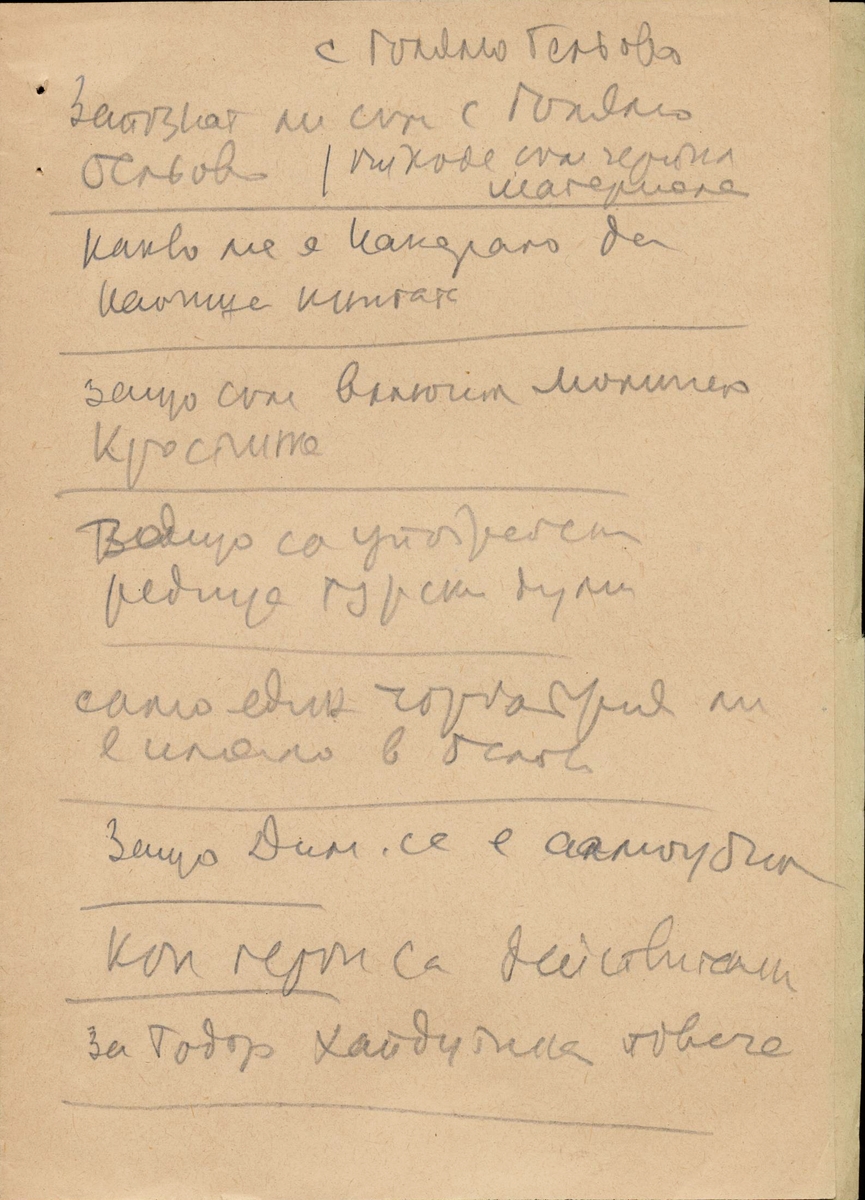 с Голямо Белово
Запознат ли съм с Голямо
Белово / откъде съм черпил
материала
Какво ме е накарало да
напиша книгата
защо съм включил момичето
Кръстина
Защо са употребени
редица турски думи
само един чорбаджия ли
е имало в Белово
Защо Дим. се е самоубил
Кои герои са действителни
За Тодор Хайдутина повече